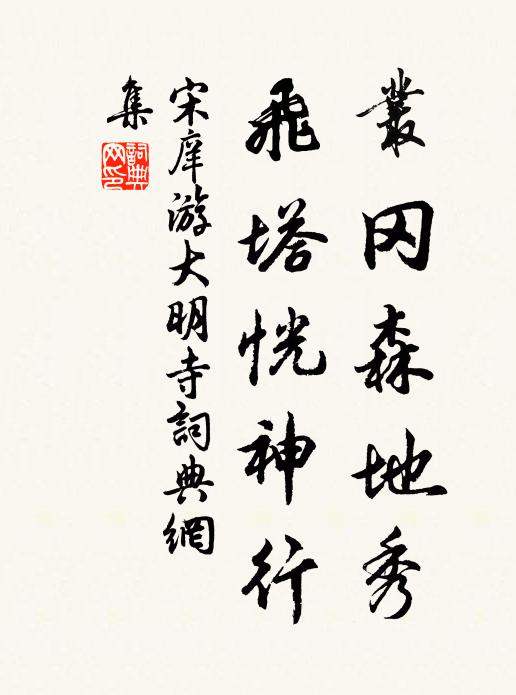 叢冈森地秀
飛塔恍神行
宋庠游大明寺詞典網
集
詞典网印